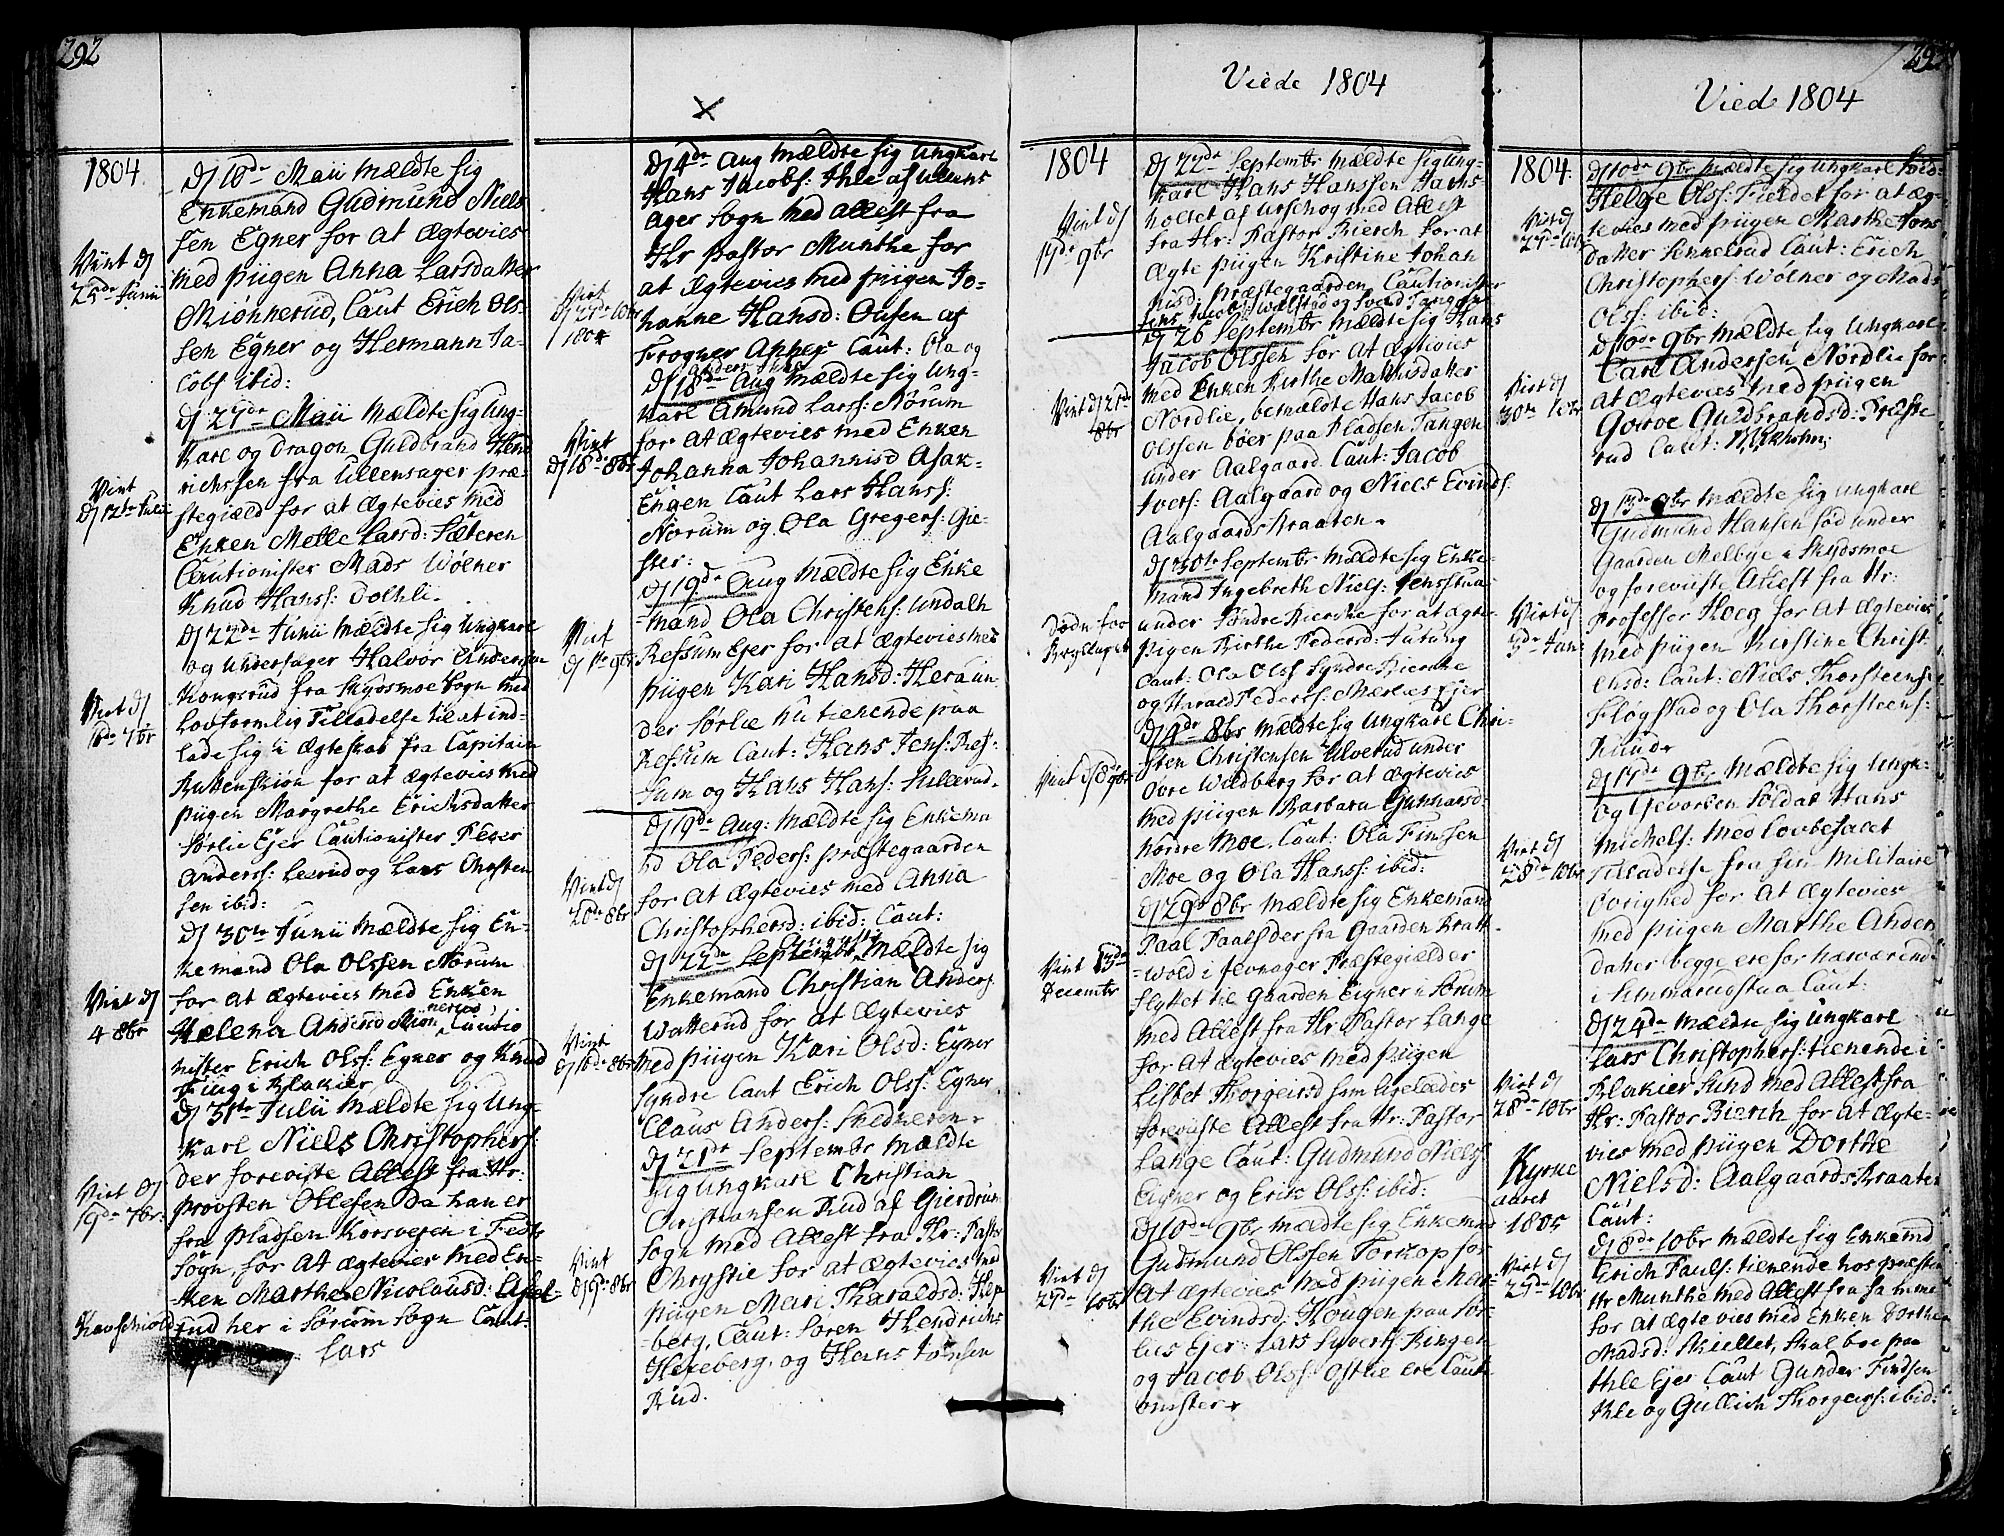 292
1804
d 16de Maii mældte sig
Enkemand Gudmund Niels
sen Egner for at Ægtevies
med piigen Anna Larsdatter
Miønnerüd, Caut Erich Ols
sen Egner og Hermann Ja-
cobs ibid:
Viint d
25de Junii
d 27de Maii mældte sig Ung-
karl og Dragon Guldbrand Hend
richsen fra Ullensager præ-
stegiæld for at Ægtevies med
Enken Mette Larsd: Sæteren
Cautionister Mads Wölner
Knud Hanss: Dolhli
Viint
d 12te Julii
d 22de Junii mældte sig Ungkarl
og Undersager Halvor Andersen
Kongsrüd fra Skydsmoe Sogn med
Lovformlig Tilladelse til at ind-
lade sig i Ægteskab fra Capitain
for at Ægtevies med
piigen Margrethe Erichsdatter
Sørlie Ejer Cautionister Peder
Anderss: Leerud og Lars Christen
sen ibid:
Viint d
7br
d 30te Junii mældte sig En-
kemand Ola Olssen Nørum
for at Ægtevies med Enken
Hælena Andersd Miønnerud Cautio
nister Erich Olss: Egner og Knud
Fiug i Blakier
Viint d
4 8br
d 31te Julii mældte sig Ung-
karl Niels Christophers:
der foreviste Attest fra Hr.
provsten Ottesen da han er
fra pladsen Korsvejen i Feets
Sogn, for at Ægtevies med En-
ken Marthe Nicolausd: Asak-
rud her i Sørum Sogn Caut:
Lars
Viint d
19de 7br:
d 4de Aug mældte sig Ungkarl
Hans Jacobs: Ihle af Ullens
ager Sogn med Attest fra
Hr pastor Munthe for
at Ægtevies med piigen Jo-
hanne Hansd: Ousen af
Frogner Annex Caut: Ola og
Anders Ihle
Viint
d 27de 10br
1804
d 18de Aug mældte sig Ung-
karl Amund Larss: Nørum
for at Ægtevies med Enken
Johanna Johannisd Asak-
Engen Caut Lars Hanss:
Nørum og Ola Gregers: Gie-
ster:
Viint
d 18de 8br
d 19de Aug mældte sig Enke
mand Ola Christens: Undalh
Refsum Ejer for at Ægtevies med
piigen Kari Hansd: Hera un-
der Sørlie nu tienende paa
Refsum Caut: Hans Jens: Ref-
sum og Hans Hans:
Viint
d 1te 9br
d 19de Aug: mældte sig Enkema
nd Ola Peders: præstegaarden
for at Ægtevies med Anna
Christophersd: ibid: Caut:
Viint d
20de 8br
d 22de Septembr mældte sig
Enkemand Christian Anders:
Watterud for at Ægtevies
med piigen Kari Olsd: Egner
Syndre Caut Erich Olss: Egner
Claus Anders: Skedneren
Viint
d 18de 8br
d 21de Septembr mældte
sig Ungkarl Christian
Christiansen Rud af Gierdrum
Sogn med Attest fra Hr: Pastor
Chrystie for at Ægtevies med
piigen Mari Tharaldsd: Hex
berg, Caut: Søren Hendrichs
Hexeberg, og Hans Jonsen
Rud.
Viint
8br
Viede 1804
1804
d 22de Septembr mældte sig Ung-
karl Hans Hanssen Jahns-
holtet af Urschog med Attest
fra Hr: Pastor Bierch for at
Ægte piigen Kristine Johan
nisd: Præstegaarden Cautionister
Jens Jacobs: Walstad og Svend Tangen
Viint d
17de 9br
d 26 Septembr mældte sig Hans
Jacob Olssen for at Ægtevies
med Enken Birthe Mathisdatter
Nordlie, bemældte Hans Jacob
Olssen boer paa Pladsen Tangen
under Aalgaard Caut: Jacob
Ivers: Aalgaard og Niels Evinds:
Aalgaards Braaten
Viint d 21de
8br
d 30te Septembr mældte sig Enke-
mand Ingebreth Niels: Jensstua
under Søndre Bierche for at ægte
Pigen Birthe Pedersd:
Caut Ola Olss Syndre Biercke
og Harald Peders: Mærlies Ejer
d 4de 8br mældte sig Ungkarl Chri-
sten Christensen Ulverud under
Øvre Wildberg for at Ægtevies
med piigen Barbara Gunnarsd:
Nordre Moe. Caut: Ola Finssen
Moe og Ola Hans: ibid:
Viint d 8de 9br
d 29de 8br mældte sig Enkemand
Paal Paals der fra Gaarden Bratt-
wold i Jevnager Præstegiælder
flyttet til Gaarden Eigner i Sørum
med Attest fra Hr Pastor Lange
for at Ægtevies med piigen
Lisbet Thorgeirsd som ligeledes
foreviste Attest fra Hr: Pastor
Lange Caut: Gudmund Niels
Eigner og Erik Olss: ibid:
Viint 13de
Decembr
d 10de 9br mældte sig Enkemand
Gudmund Olssen Torkop for
at Ægtevies med piigen Mar-
the Evindsd: Hougen paa Sør-
lies Ejer: Lars Syvers: Ringer
og Jacob Olss: Østlie ere Caut
ionister
Viint d
27de 10br
Vied 1804
1804.
d 10de 9br mældte sig Ungkarl
Helge Olss: Fieldet for at Æg-
tevies med piigen Marthe Jons
datter Sennerud Caut: Erich
Christophers: Wölner og Mads
Olss: ibid:
Viint d
27de 10br
d 10de 9br mældte sig Ungkarl
Carl Andersen Nordlie for
at Ægtevies med piigen
Goroe Guldbrandsd: Præste
rud Caut:
Viint d
30te 10br
d 13de 9br mældte sig Ungkarl
Gudmund Hansen fød under
Gaarden Melbye i Skydsmoe
og foreviiste Attest fra Hr:
Professer Hoeg for at Ægtevies
med piigen Kirstine Christ-
ensd: Caut: Niels Thorsteens:
Fløgstad og Ola Thorsteens:
Ruud
Viint d
Jan:
d 17de 9br mældte sig Ungk-
og Gevorben Soldat Hans
Michels: med Lovbefalet
Tilladelse fra sin Militaire
Øvrighed for at Ægtevies
med piigen Marthe Anders
datter begge ere for nærværende
i Simmarudstua Caut:
Viint d
28de 10br
d 24de mældte sig Ungkarl
Lars Christophers: tienende i
Blakier Sund med Attest fra
Hr: Pastor Bierch for at Ægte-
vies med piigen Dorthe
Nielsd: Aalgaards Braaten
Caut:
Viint d
28de 10br
aaret
1805
d 8de 10br mældte sig Enkemd
Erich Pauls: tienende hos præsten
Hr Munthe med Attest fra samme
for at Ægtevies med Enken Dorthe
Madsd: Skiellet, skal boe paa
Ihle Ejer Caut Gunder Findsen
Ihle og Gullich Thorgers: ibid:
Viint d
27de 10br